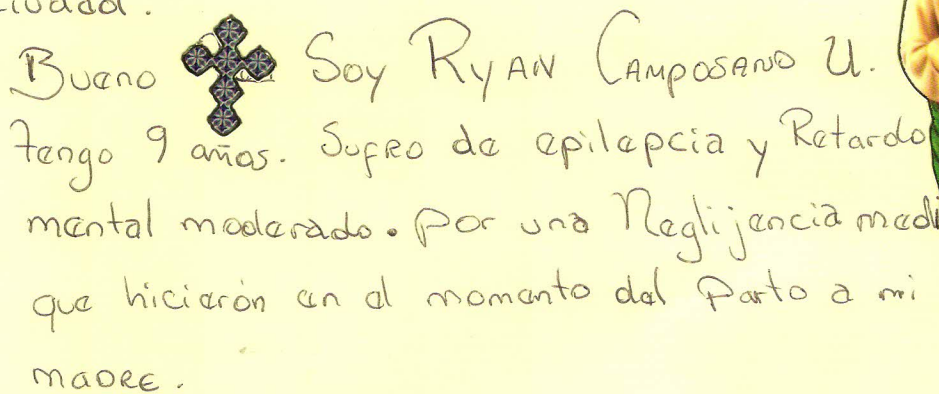 Bueno Soy RYAN CAMPOSANO U.
tengo 9 años. Sufro de epilepcia y Retardo
mental moderado. Por una Neglijencia medi
que hicierón en el momento del Parto a mi
MADRE.